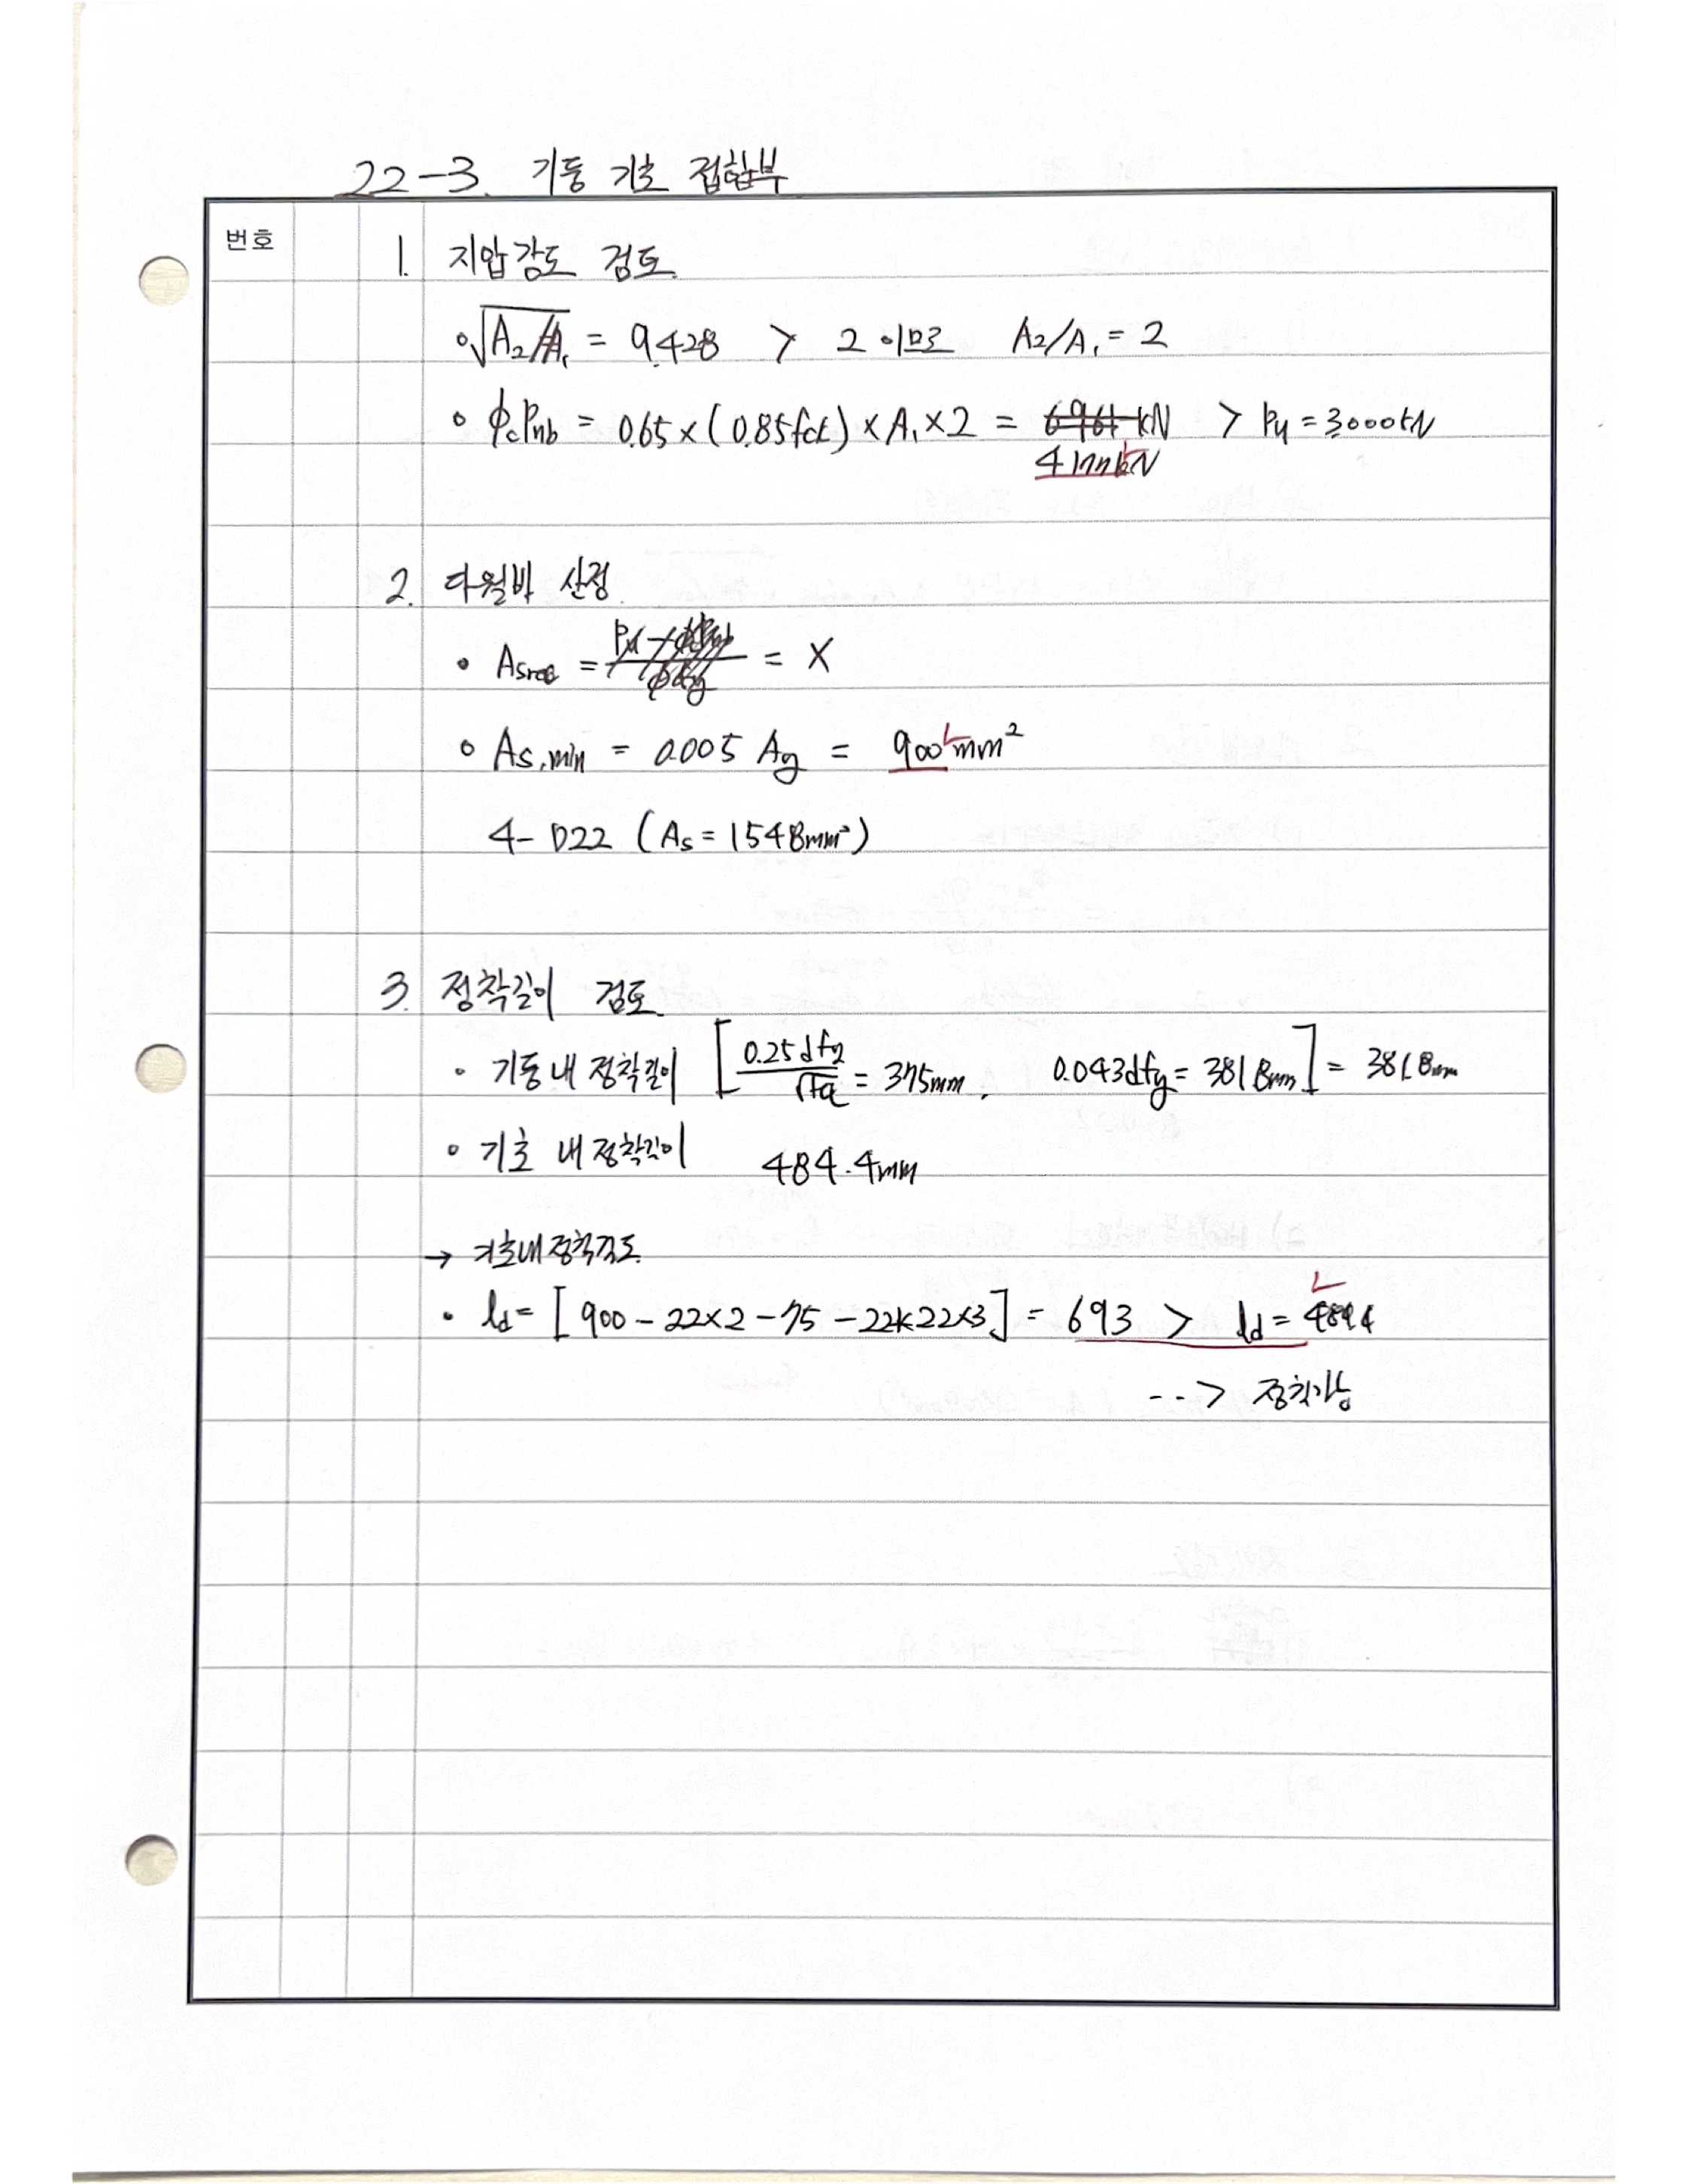 22-3. 기둥 기초 접합부
번호
1. 지압강도 검토.
∘ √A₂/A₁ = 9.428 > 2 이므로 A₂/A₁ = 2
∘ ϕcPnb = 0.65 × (0.85fck) × A₁ × 2 = 6961 kN > Pu = 3000kN
4177kN
2. 다월바 산정.
• Asreq = = X
∘ As,min = 0.005 Ag = 900 mm²
4- D22 (As = 1548mm²)
3. 정착길이 검토
• 기둥내 정착길이 [0.25dfy/√fck = 375mm, 0.043dfy = 381.8mm] = 381.8mm
∘ 기초 내 정착길이 484.4mm
→ 기초내 정착검토.
• ld = [900 - 22×2 - 75 - 22×22×3] = 693 > ld = 484.4
--> 정착가능